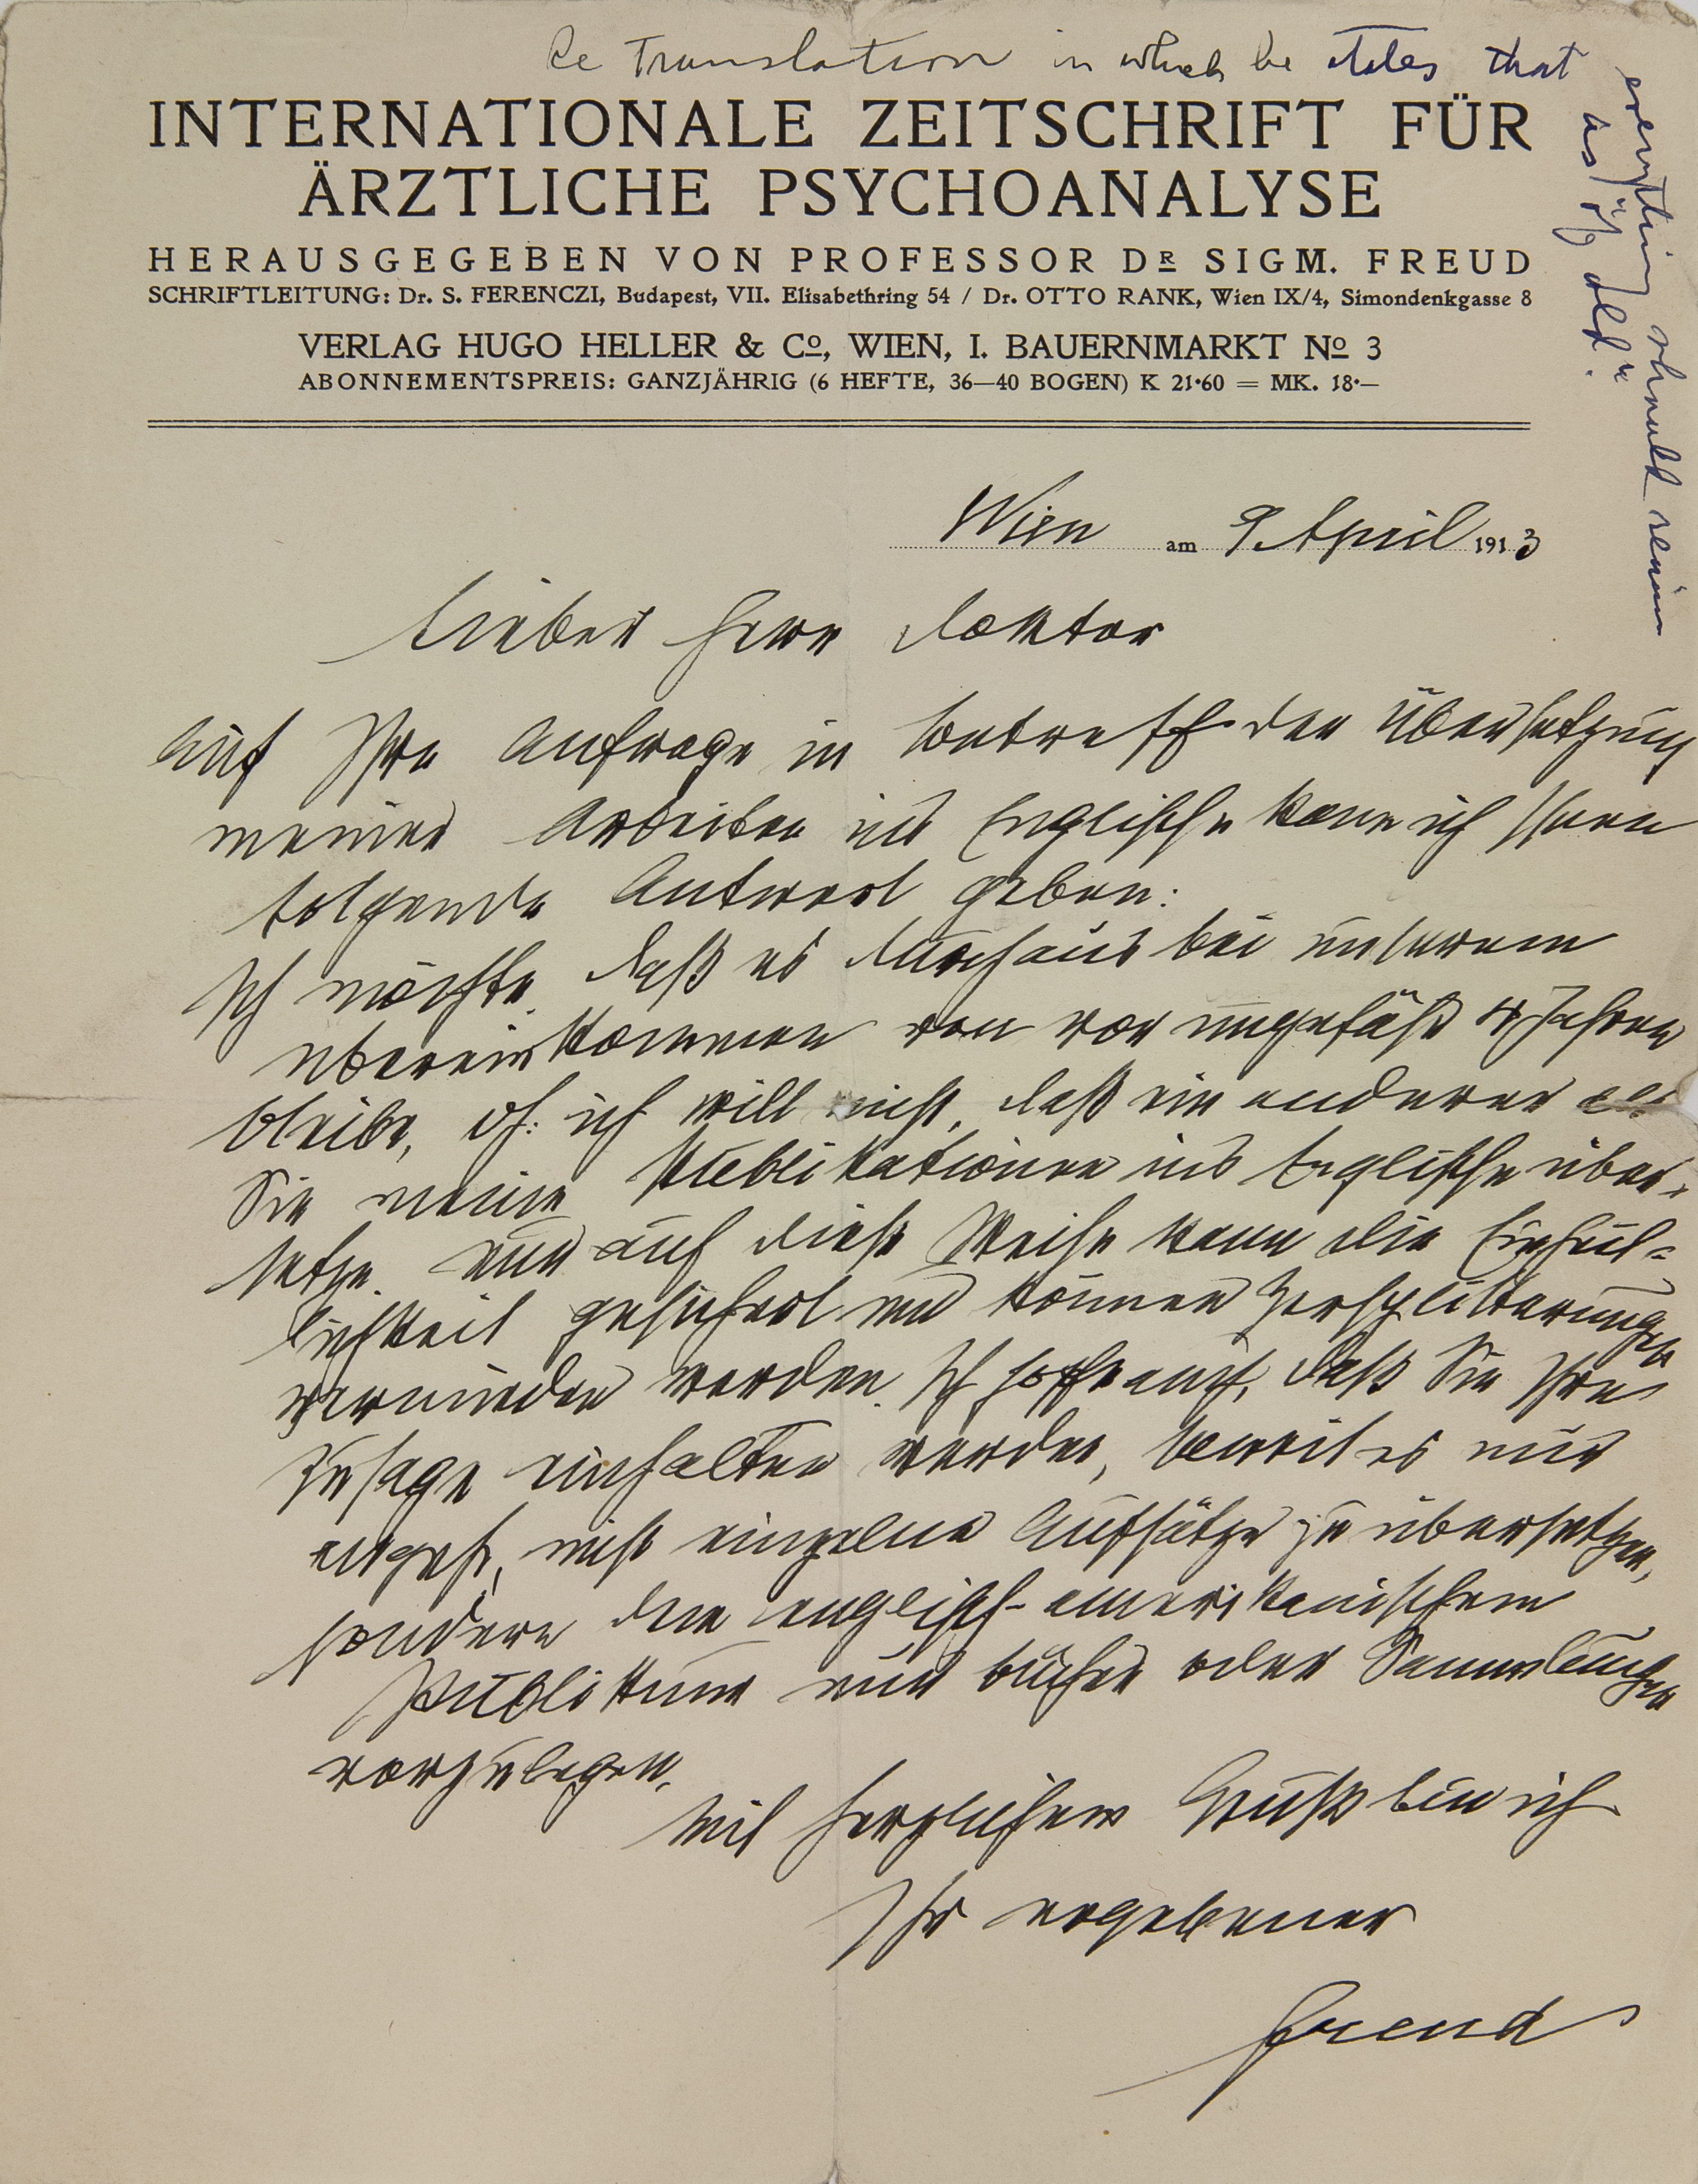 Re Translation in which he states that
everything should remain
as "of old".
INTERNATIONALE ZEITSCHRIFT FÜR
ÄRZTLICHE PSYCHOANALYSE
HERAUSGEGEBEN VON PROFESSOR DR SIGM. FREUD
SCHRIFTLEITUNG: Dr. S. FERENCZI, Budapest, VII. Elisabethring 54 / Dr. OTTO RANK, Wien IX/4, Simondenkgasse 8
VERLAG HUGO HELLER & Co, WIEN, I. BAUERNMARKT No 3
ABONNEMENTSPREIS: GANZJÄHRIG (6 HEFTE, 36—40 BOGEN) K 21·60 = MK. 18·—
Wien am 9. April 1913
Lieber Herr Doktor
Auf Ihre Anfrage in betreff der Übersetzung
meiner Arbeiten ins Englische kann ich Ihnen
folgende Antwort geben:
Ich möchte, daß es durchaus bei unserem
Übereinkommen von vor ungefähr 4 Jahren
bleibe, dh: ich will nicht, daß ein anderer als
Sie meine Publikationen ins Englische über-
setze. Nur auf diese Weise kann die Einheit-
lichkeit gesichert und können Zersplitterungen
vermieden werden. Ich hoffe auch, daß Sie Ihre
Zusage einhalten werden, soweit es nur
angeht, nicht einzelne Aufsätze zu übersetzen,
sondern dem englisch-amerikanischem
Publikum nur Bücher oder Sammlungen
vorzulegen.
Mit herzlichem Gruß bin ich
Ihr ergebener
Freud